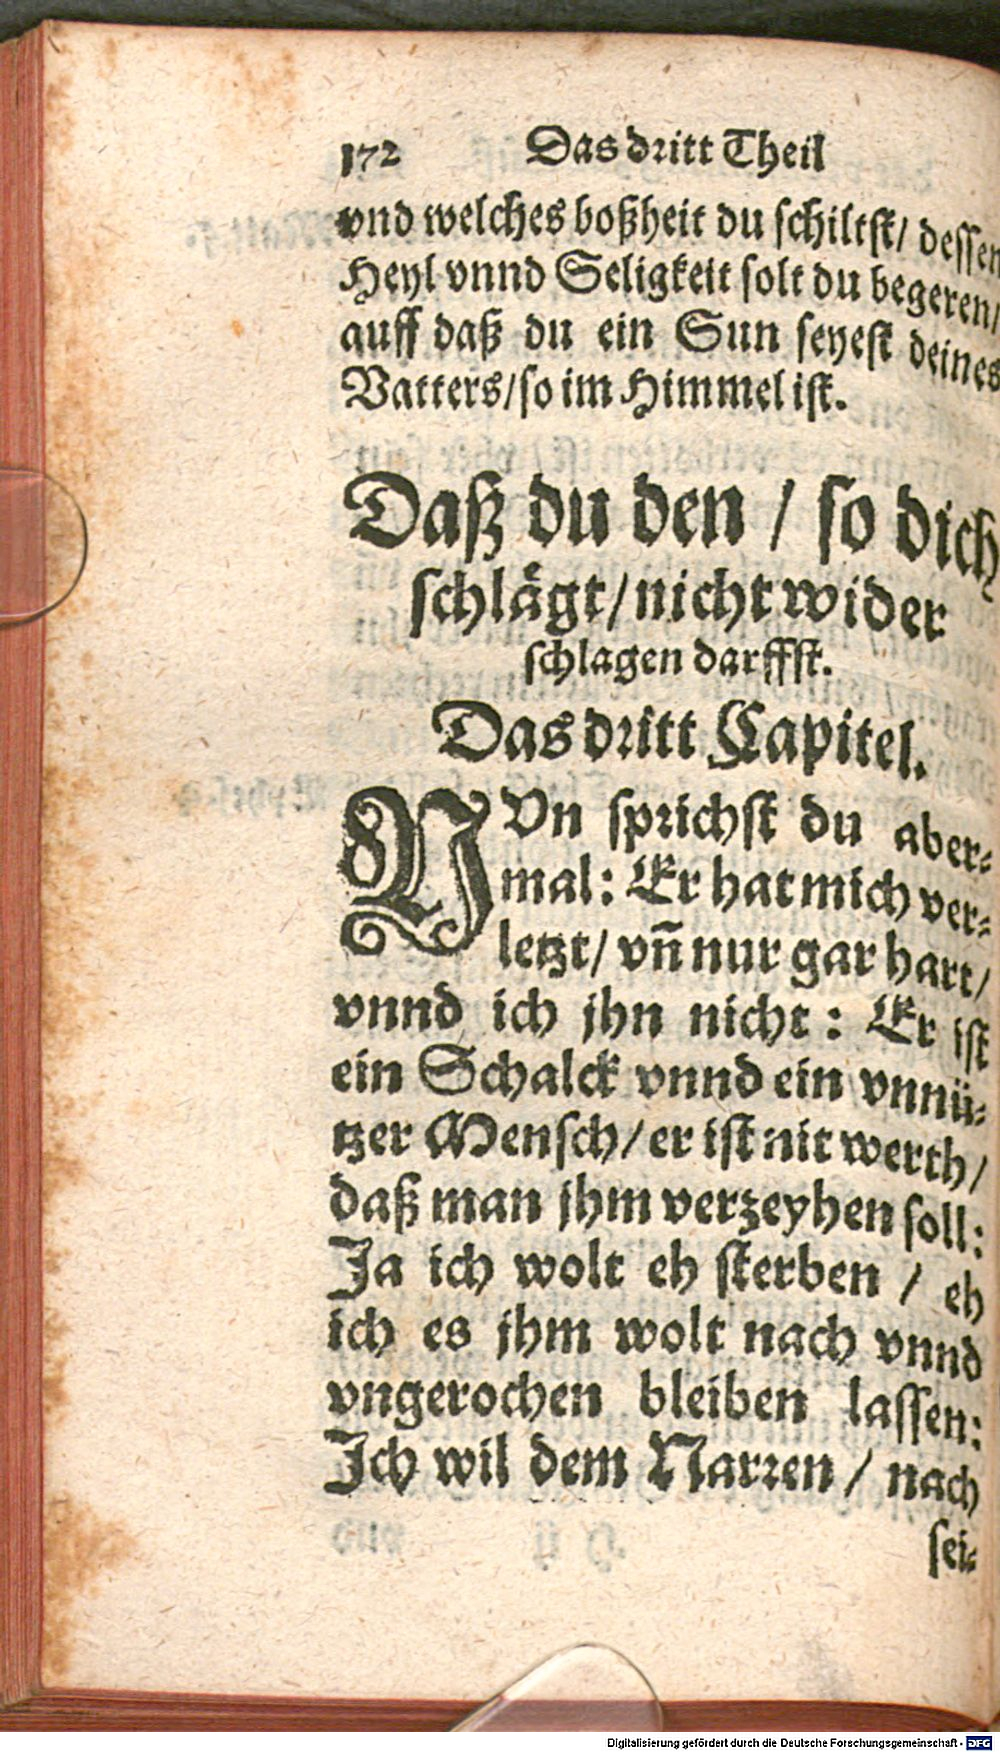 172 Das dritt Theil
vnd welches boßheit du schiltst/ dessen
Heyl vnnd Seligkeit solt du begeren/
auff daß du ein Sun seyest deines
Vatters/so im Himmel ist.
Daß du den / so dich
schlägt/nicht wider
schlagen darffst.
Das dritt Capitel.
NVn sprichst du aber-
mal: Er hat mich ver-
letzt/ vn̄ nur gar hart/
vnnd ich jhn nicht: Er ist
ein Schalck vnnd ein vnnü-
tzer Mensch/er ist nit werth/
daß man jhm verzeyhen soll:
Ja ich wolt eh sterben / eh
ich es jhm wolt nach vnnd
vngerochen bleiben lassen:
Ich wil dem Narren / nach
sei-
Digitalisierung gefördert durch die Deutsche Forschungsgemeinschaft - DFG